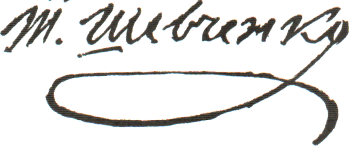 Т. Шевченко